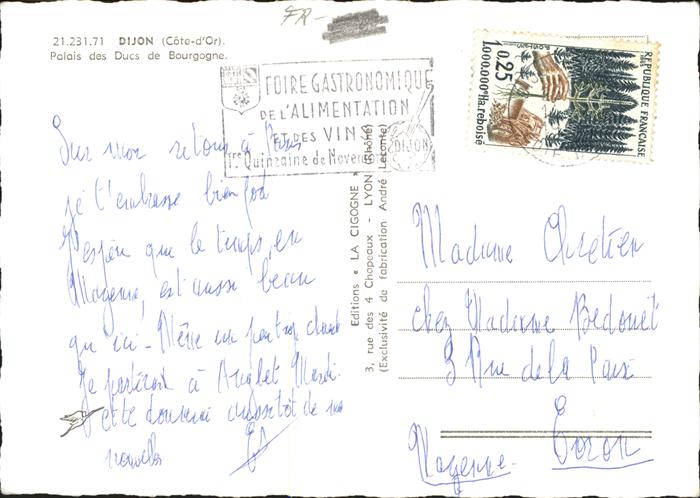 FR-
21.231.71 DIJON (Côte-d'Or).
Palais des Ducs de Bourgogne.
FOIRE GASTRONOMIQUE
DE L'ALIMENTATION
ET DES VINS
1re Quinzaine de Novembre
DIJON
REPUBLIQUE FRANÇAISE
1965
0,25
1.000.000e Ha. reboisé
Sur mon retour à Paris
je t'embrasse bien fort
J'espère que le temps, en
Mayenne, est aussi beau
qu'ici - Même un peu trop chaud
Je partirai à Anglet Mardi.
et te donnerai aussitôt de mes
nouvelles
Editions « LA CIGOGNE »
3, rue des 4 Chapeaux - LYON (Rhône)
(Exclusivité de fabrication André Leconte)
Madame Chretien
chez Madame Bedouet
3 Rue de la Paix
Evron
Mayenne.